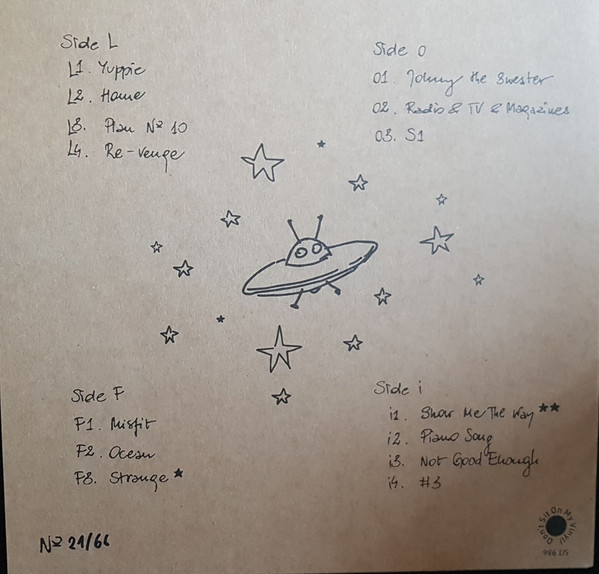 Side L
L1. Yuppie
L2. Home
L3. Plan Nº 10
L4. Re-venge
Side O
O1. Johnny the Swester
O2. Radio & TV & Magazines
O3. S1
Side F
F1. Misfit
F2. Ocean
F3. Strange *
Side i
i1. Show Me The Way **
i2. Piano Song
i3. Not Good Enough
i4. #3
Nº 21/66
Don't Sit On My Vinyl!